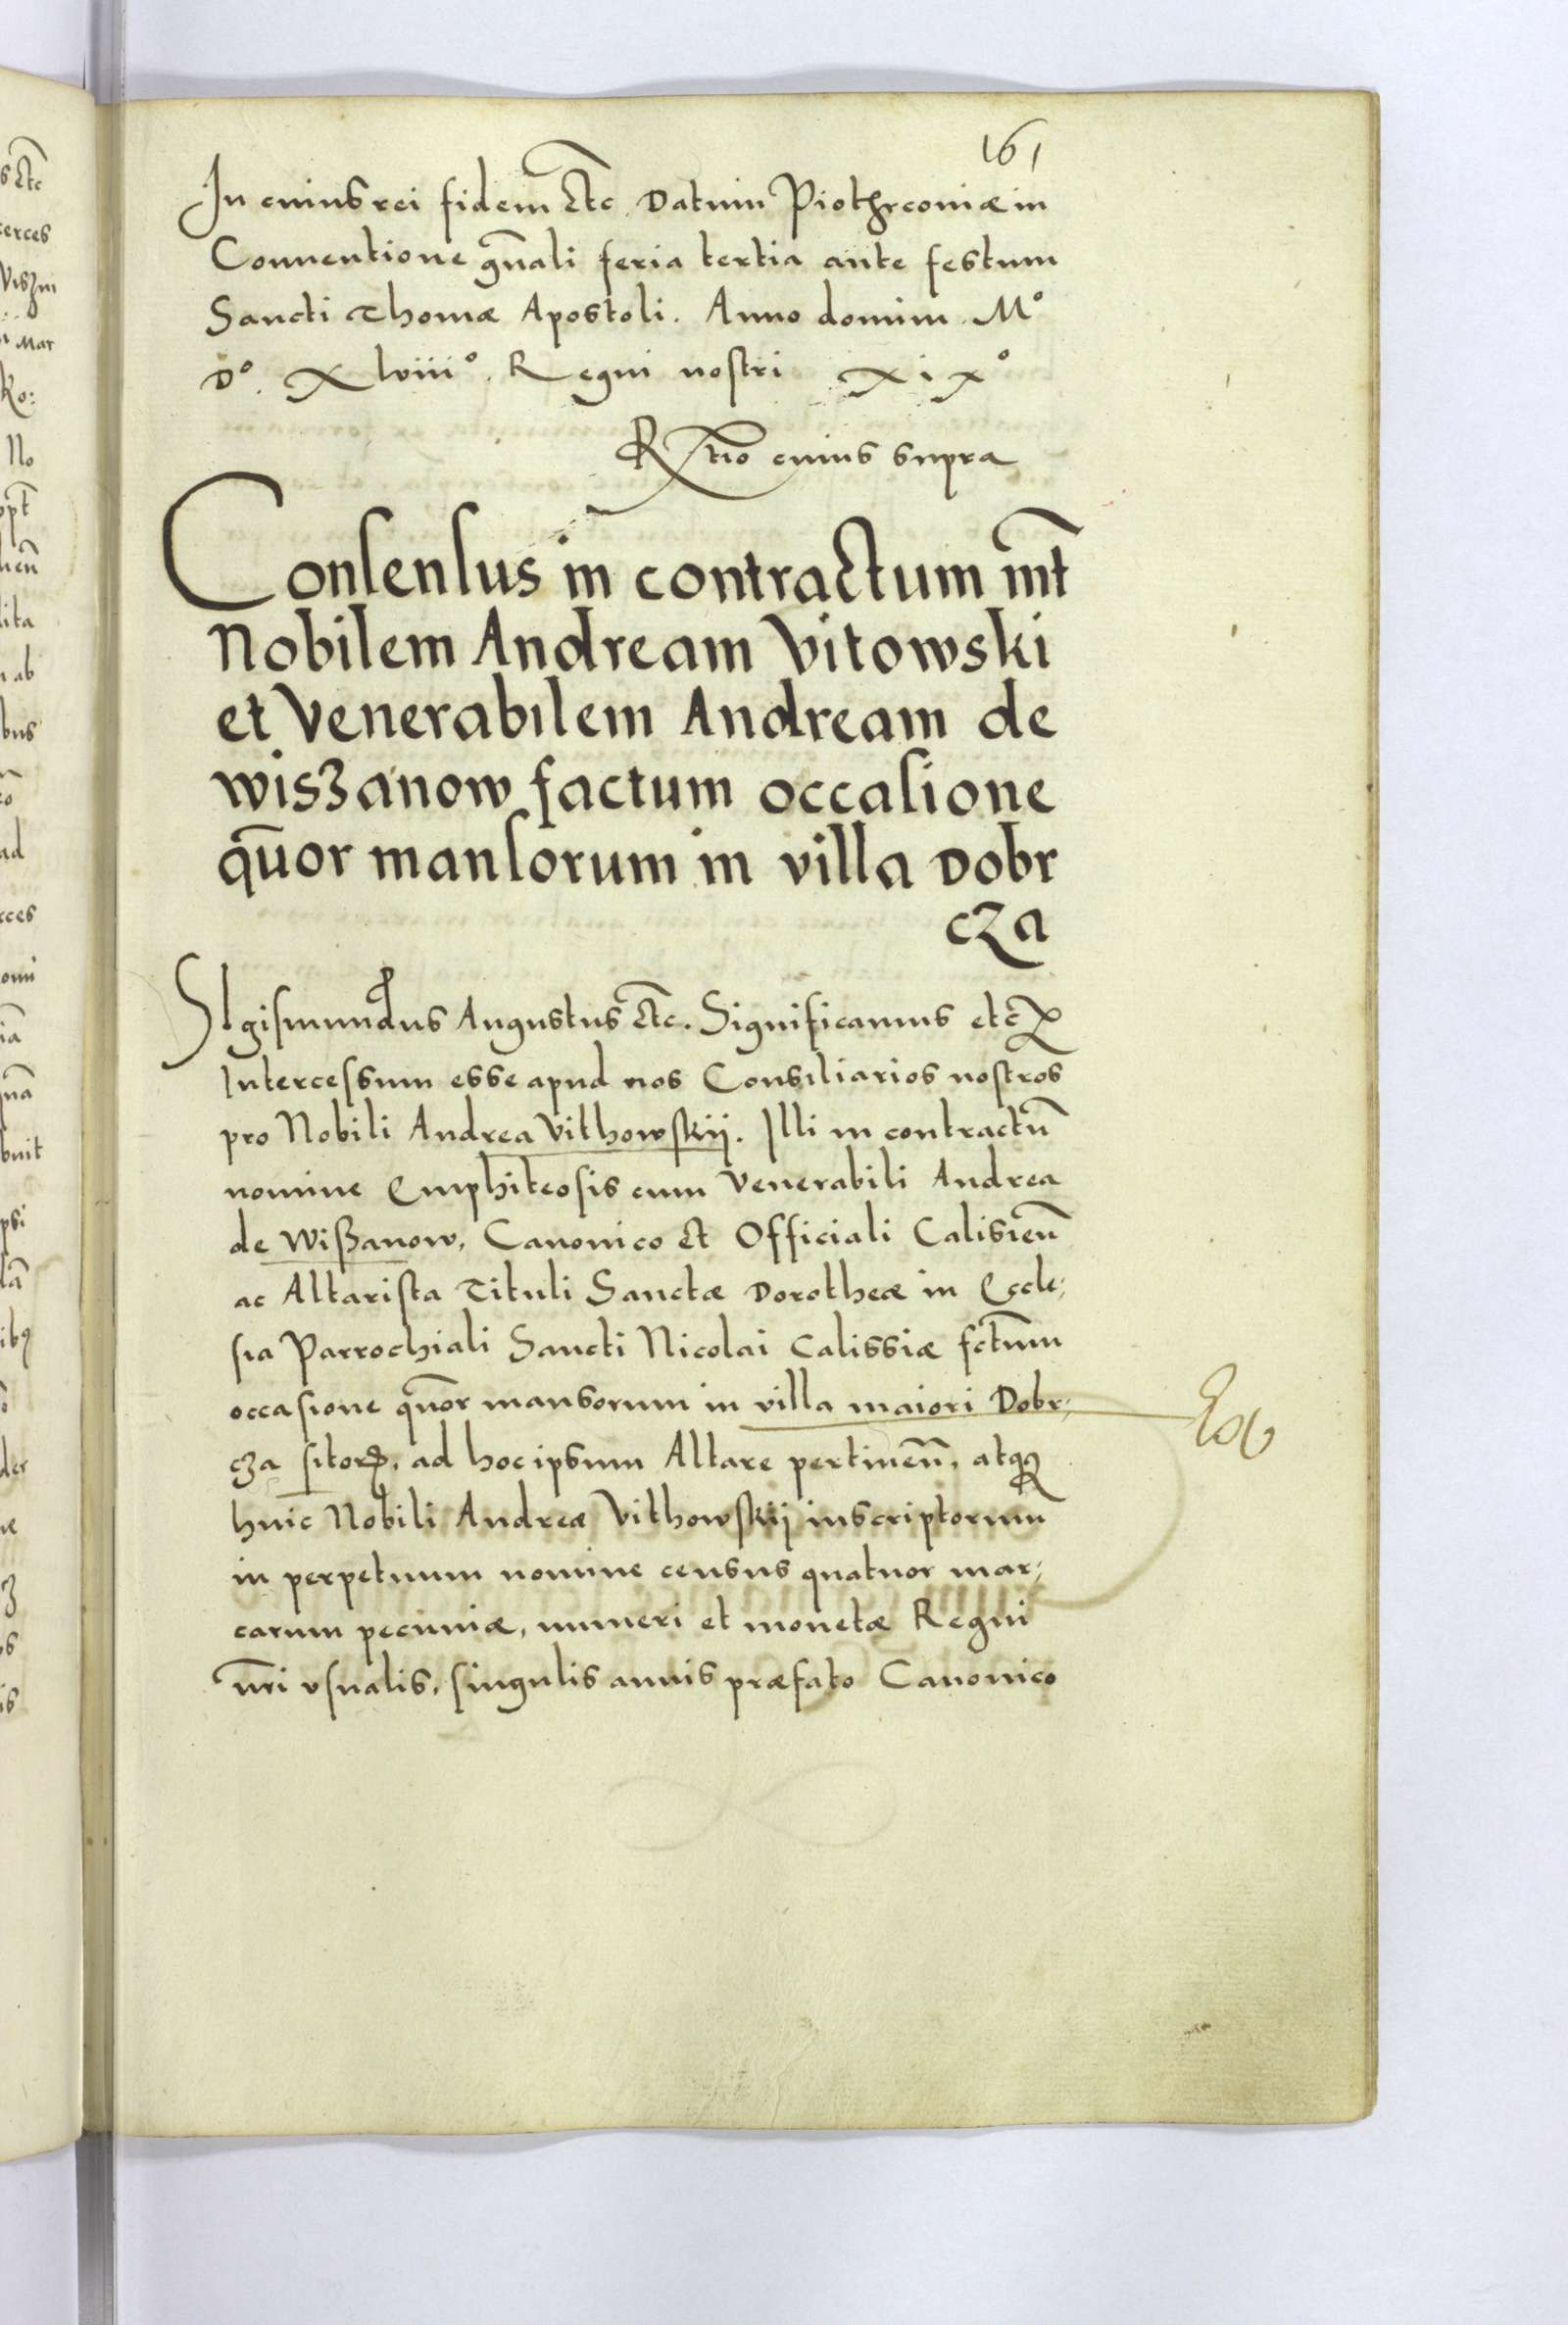 161
In cuius rei fidem etc. Datum Piothrconiæ in
Conuentione gn̄ali feria tertia ante festum
Sancti Thomæ Apostoli. Anno domini. M°
D°. Xlviii°. Regni nostri xix°
Rtio cuius supra
Consensus in contractum int̄
Nobilem Andream Vitowski
et Venerabilem Andream de
wiszanow factum occasione
qūor mansorum in villa Dobr
cza
SIgismundus Augustus etc. Significamus etc
Intercessum esse apud nos Consiliarios nostros
pro Nobili Andrea Vithowskij. Illi in contractū
nomine Emphiteosis cum Venerabili Andrea
de Wißanow, Canonico et Officiali Calisieñ
ac Altarista Tituli Sanctæ Dorotheæ in Eccle-
sia Parrochiali Sancti Nicolai Calissiæ fctum
occasione qūor mansorum in villa maiori Dobr-
cza sitorꝝ, ad hoc ipsum Altare pertineñ, atqꝫ
huic Nobili Andreæ Vithowskij inscriptorum
in perpetuum nomine census quatuor mar-
carum pecuniæ, numeri et monetæ Regni
nr̄i vsualis, singulis annis præfato Canonico